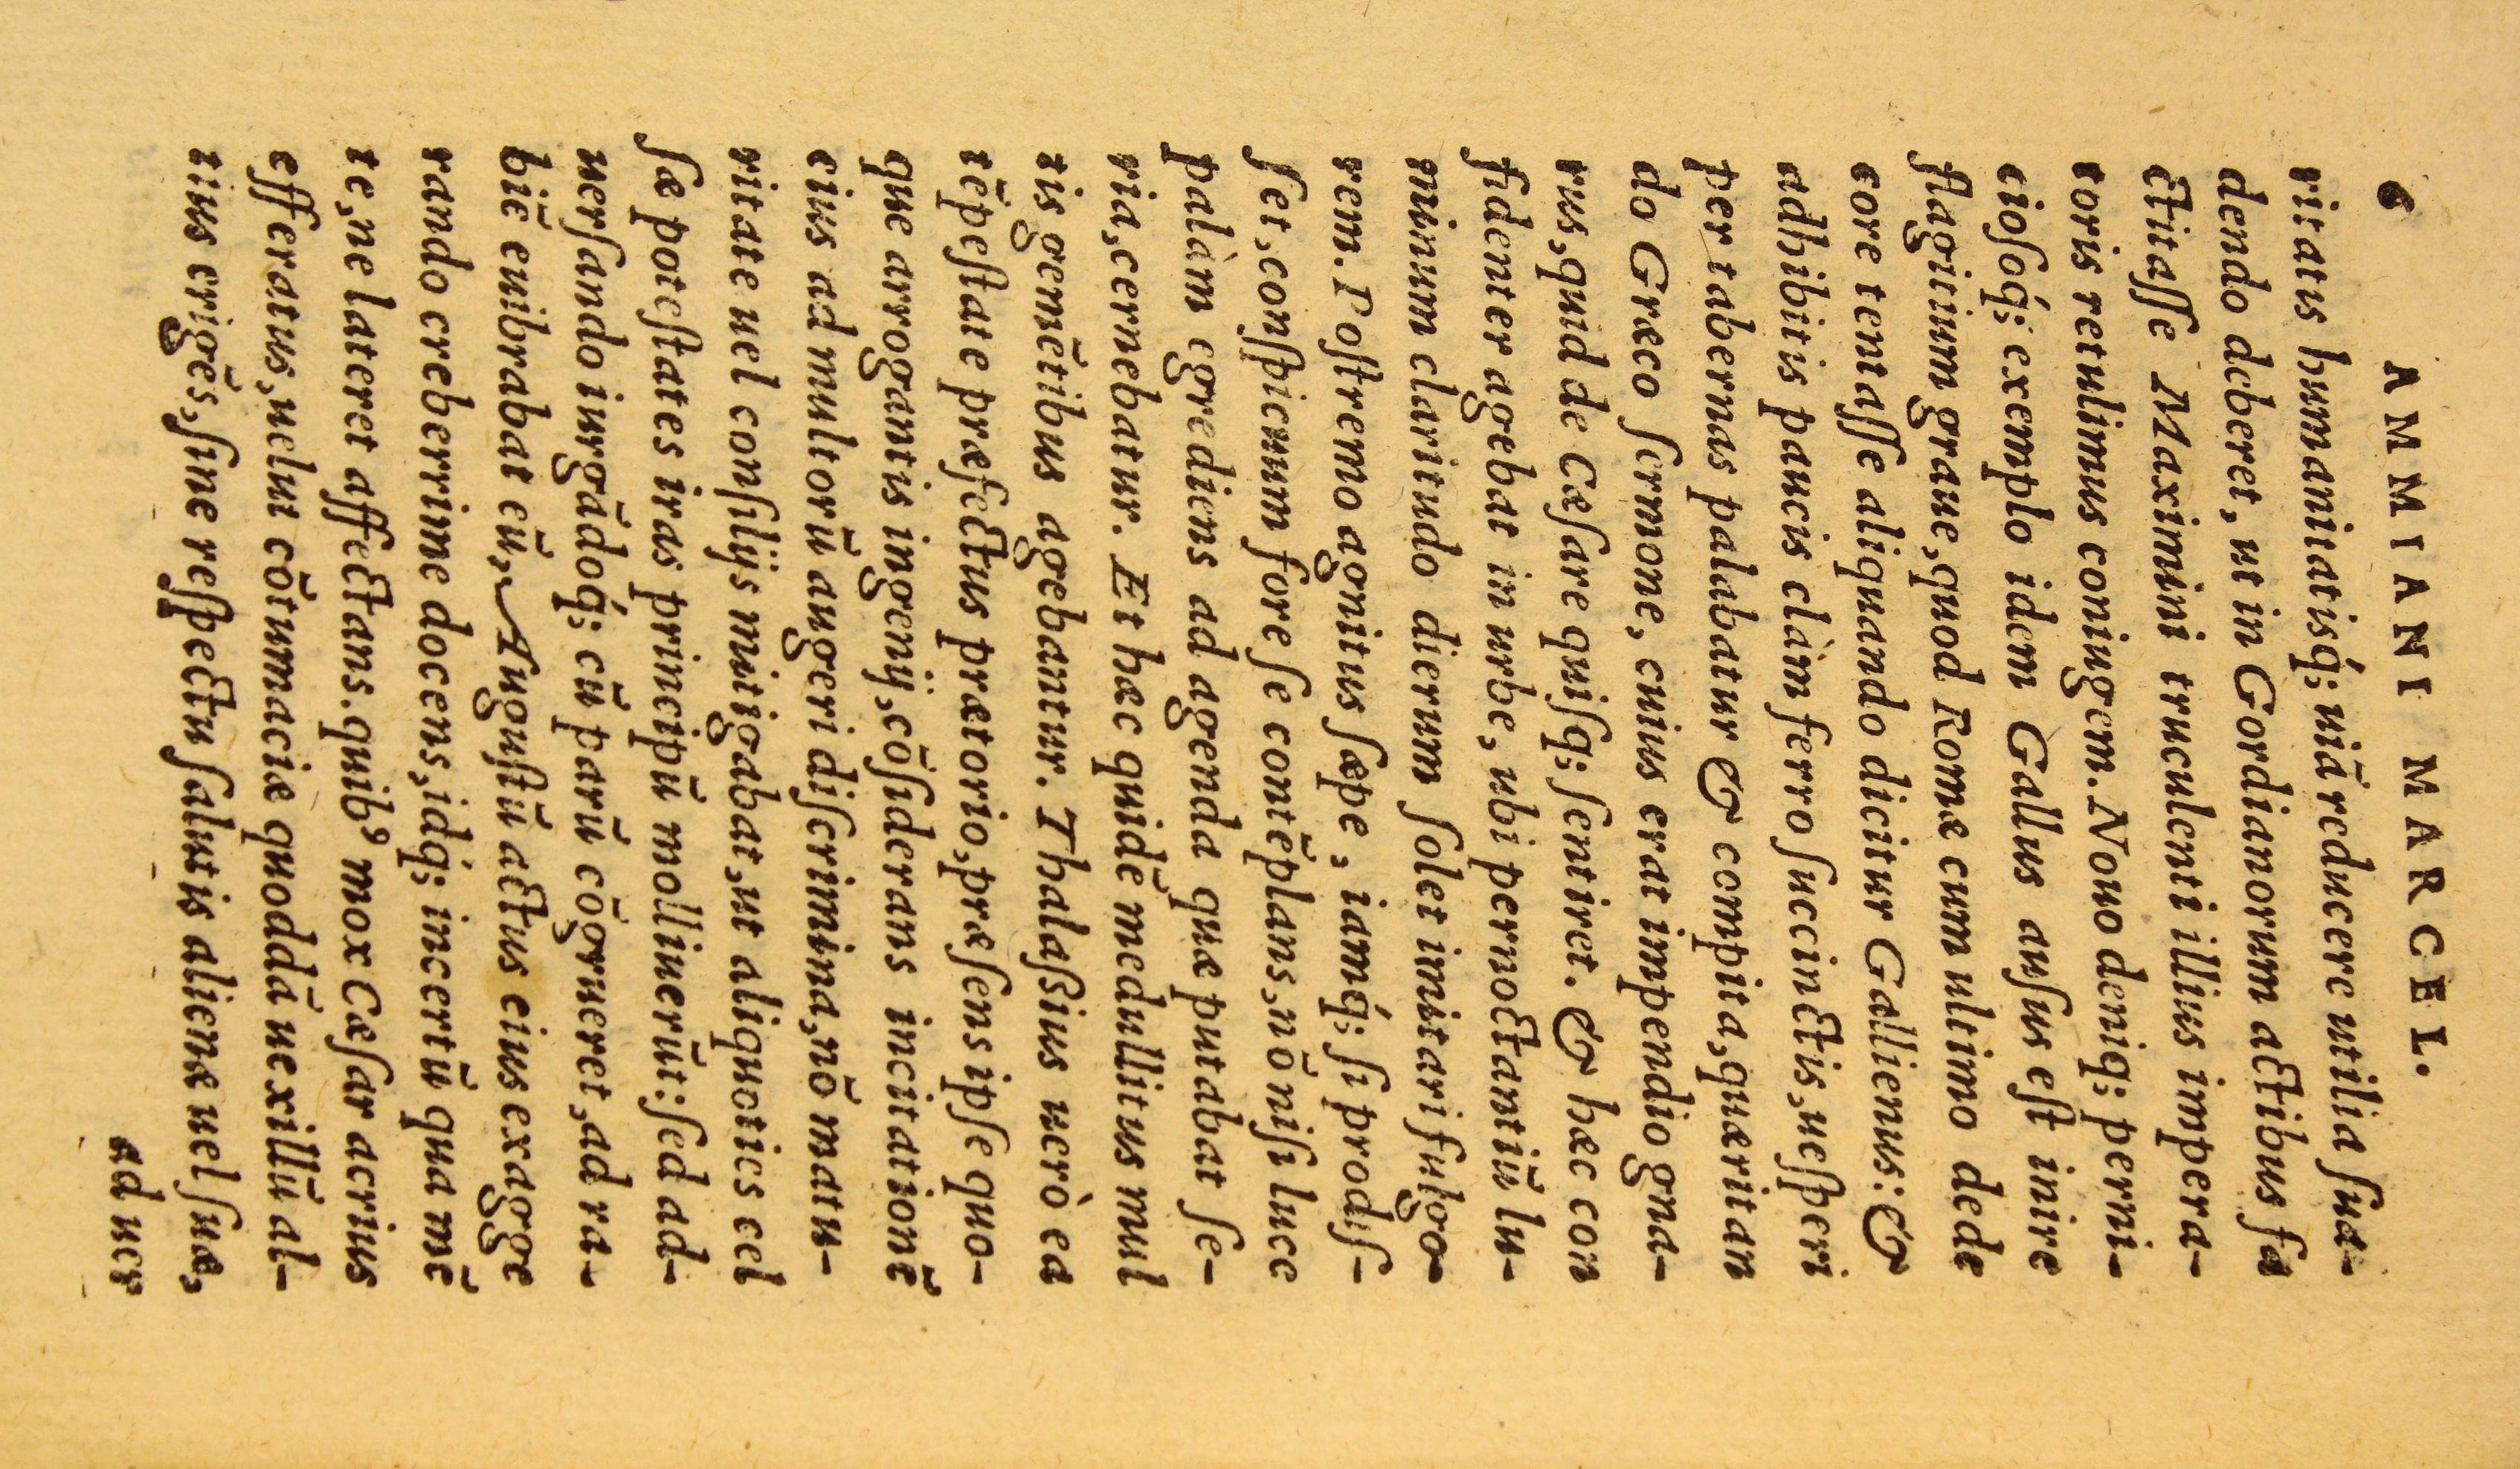 6 AMMIANI MARCEL.
ritatis humanitatisq́; uiā reducere utilia ſua-
dendo deberet, ut in Gordianorum actibus fa
ctitaſſe Maximini truculenti illius impera-
toris retulimus coniugem. Nouo deniq; perni-
cioſoq́; exemplo idem Gallus auſus eſt inire
flagitium graue, quod Romæ cum ultimo dede
core tentaſſe aliquando dicitur Gallienus: &
adhibitis paucis clàm ferro ſuccinctis, ueſperi
per tabernas palabatur & compita, quæritan
do Græco ſermone, cuius erat impendio gna-
rus, quid de Cæſare quiſq; ſentiret. & hæc con
fidenter agebat in urbe, ubi pernoctantiū lu-
minum claritudo dierum ſolet imitari fulgo-
rem. Poſtremo agnitus ſæpe, iamq́; ſi prodiſ-
ſet, conſpicuum fore ſe contēplans, nō niſi luce
palàm egrediens ad agenda quæ putabat ſe-
ria, cernebatur. Et hæc quidē medullitus mul
tis gemētibus agebantur. Thalaſsius uerò ea
tēpeſtate præfectus prætorio, præſens ipſe quo-
que arrogantis ingenij, cōſiderans incitationē
eius ad multorū augeri diſcrimina, nō matu-
ritate uel conſilijs mitigabat, ut aliquoties cel
ſæ poteſtates iras principū mollinerūt: ſed ad-
uerſando iurgādoq́; cū parū cōgrueret, ad ra-
biē euibrabat eū, Auguſtū actus eius exagge
rando creberrime docens, idq; incertū qua mē
te, ne lateret affectans. quibꝰ mox Cæſar acrius
efferatus, uelut cōtumaciæ quoddā uexillū al-
tius erigēs, ſine reſpectu ſalutis alienæ uel ſuæ,
ad uer